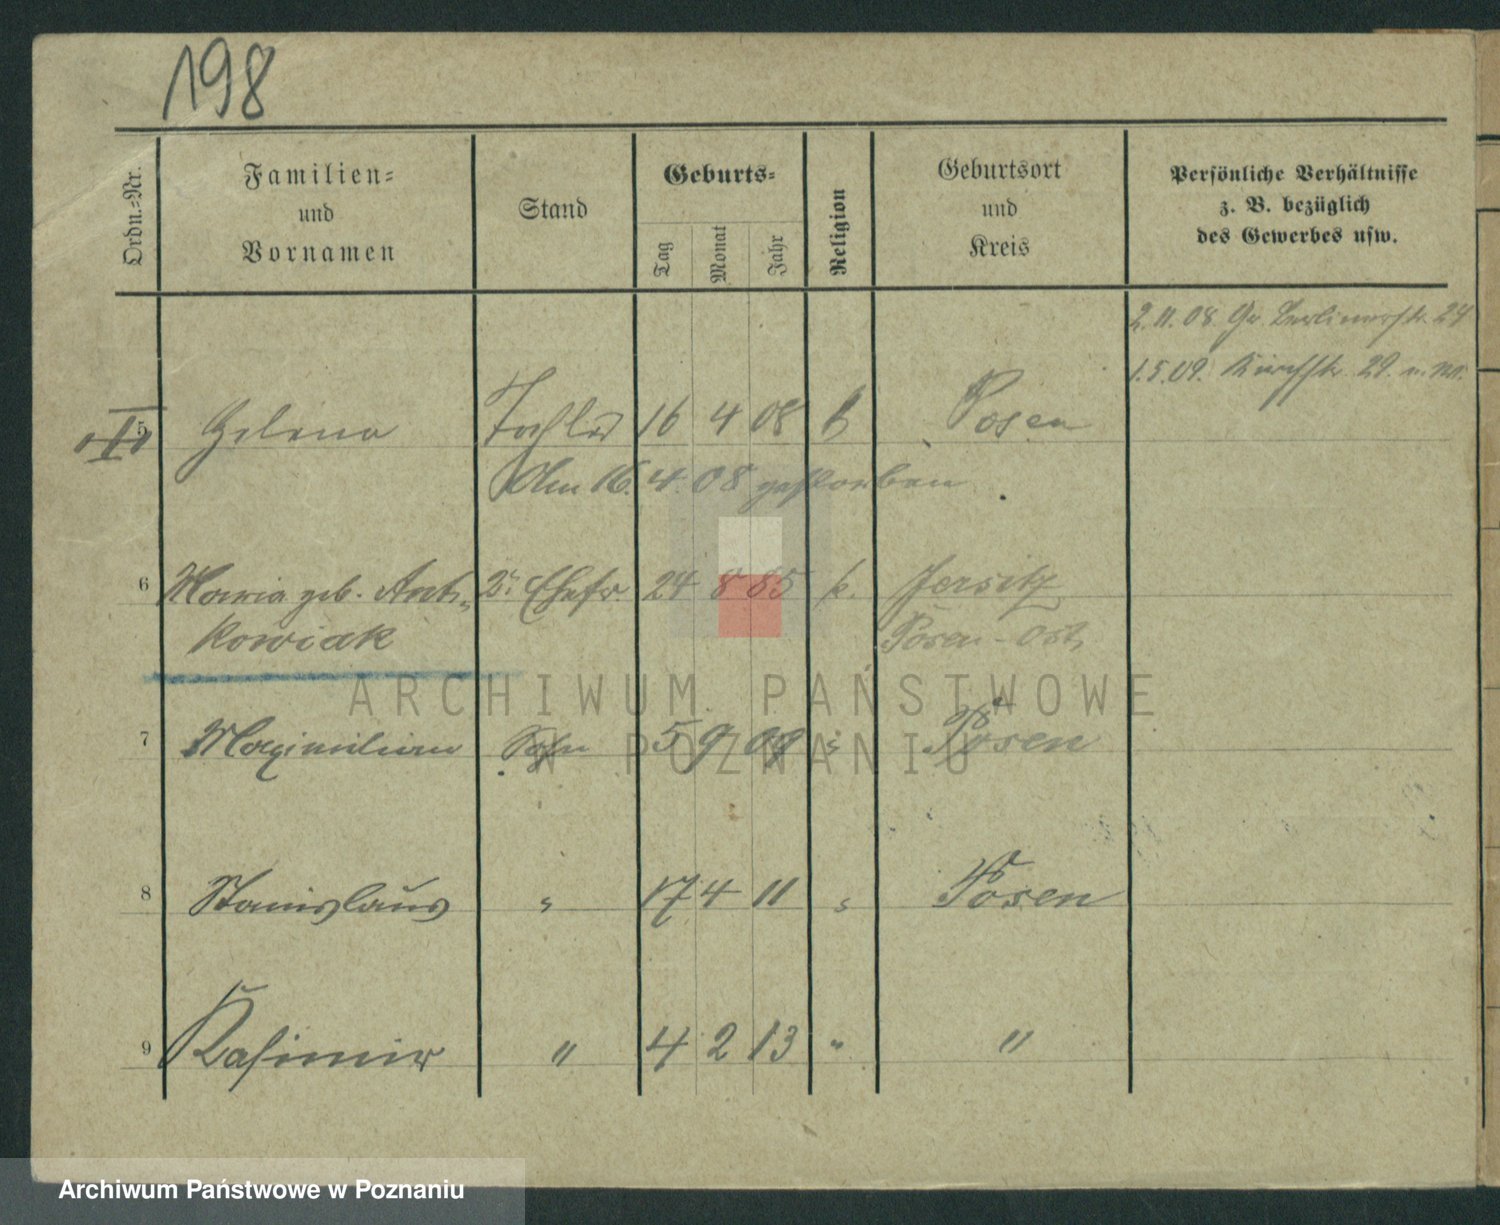 198
Ordn.-Nr.
Familien-
und
Vornamen
Stand
Geburts-
Tag
Monat
Jahr
Religion
Geburtsort
und
Kreis
Persönliche Verhältnisse
z. B. bezüglich
des Gewerbes usw.
2. 11. 08. Gr. Berlinerstr. 24
1. 5. 09.
5 Helena Tochter 16 4 08 k Posen
Am 16. 4. 08 gestorben.
6 Maria geb. Ant- 2te Ehefr. 24 8 85 k. Jersitz
kowiak Posen-Ost,
7 Maximilian Sohn 5 9 09 " Posen
8 Stanislaus " 17 4 11 " Posen
9 Kasimir " 4 2 13 " "
ARCHIWUM PAŃSTWOWE
W POZNANIU
Archiwum Państwowe w Poznaniu